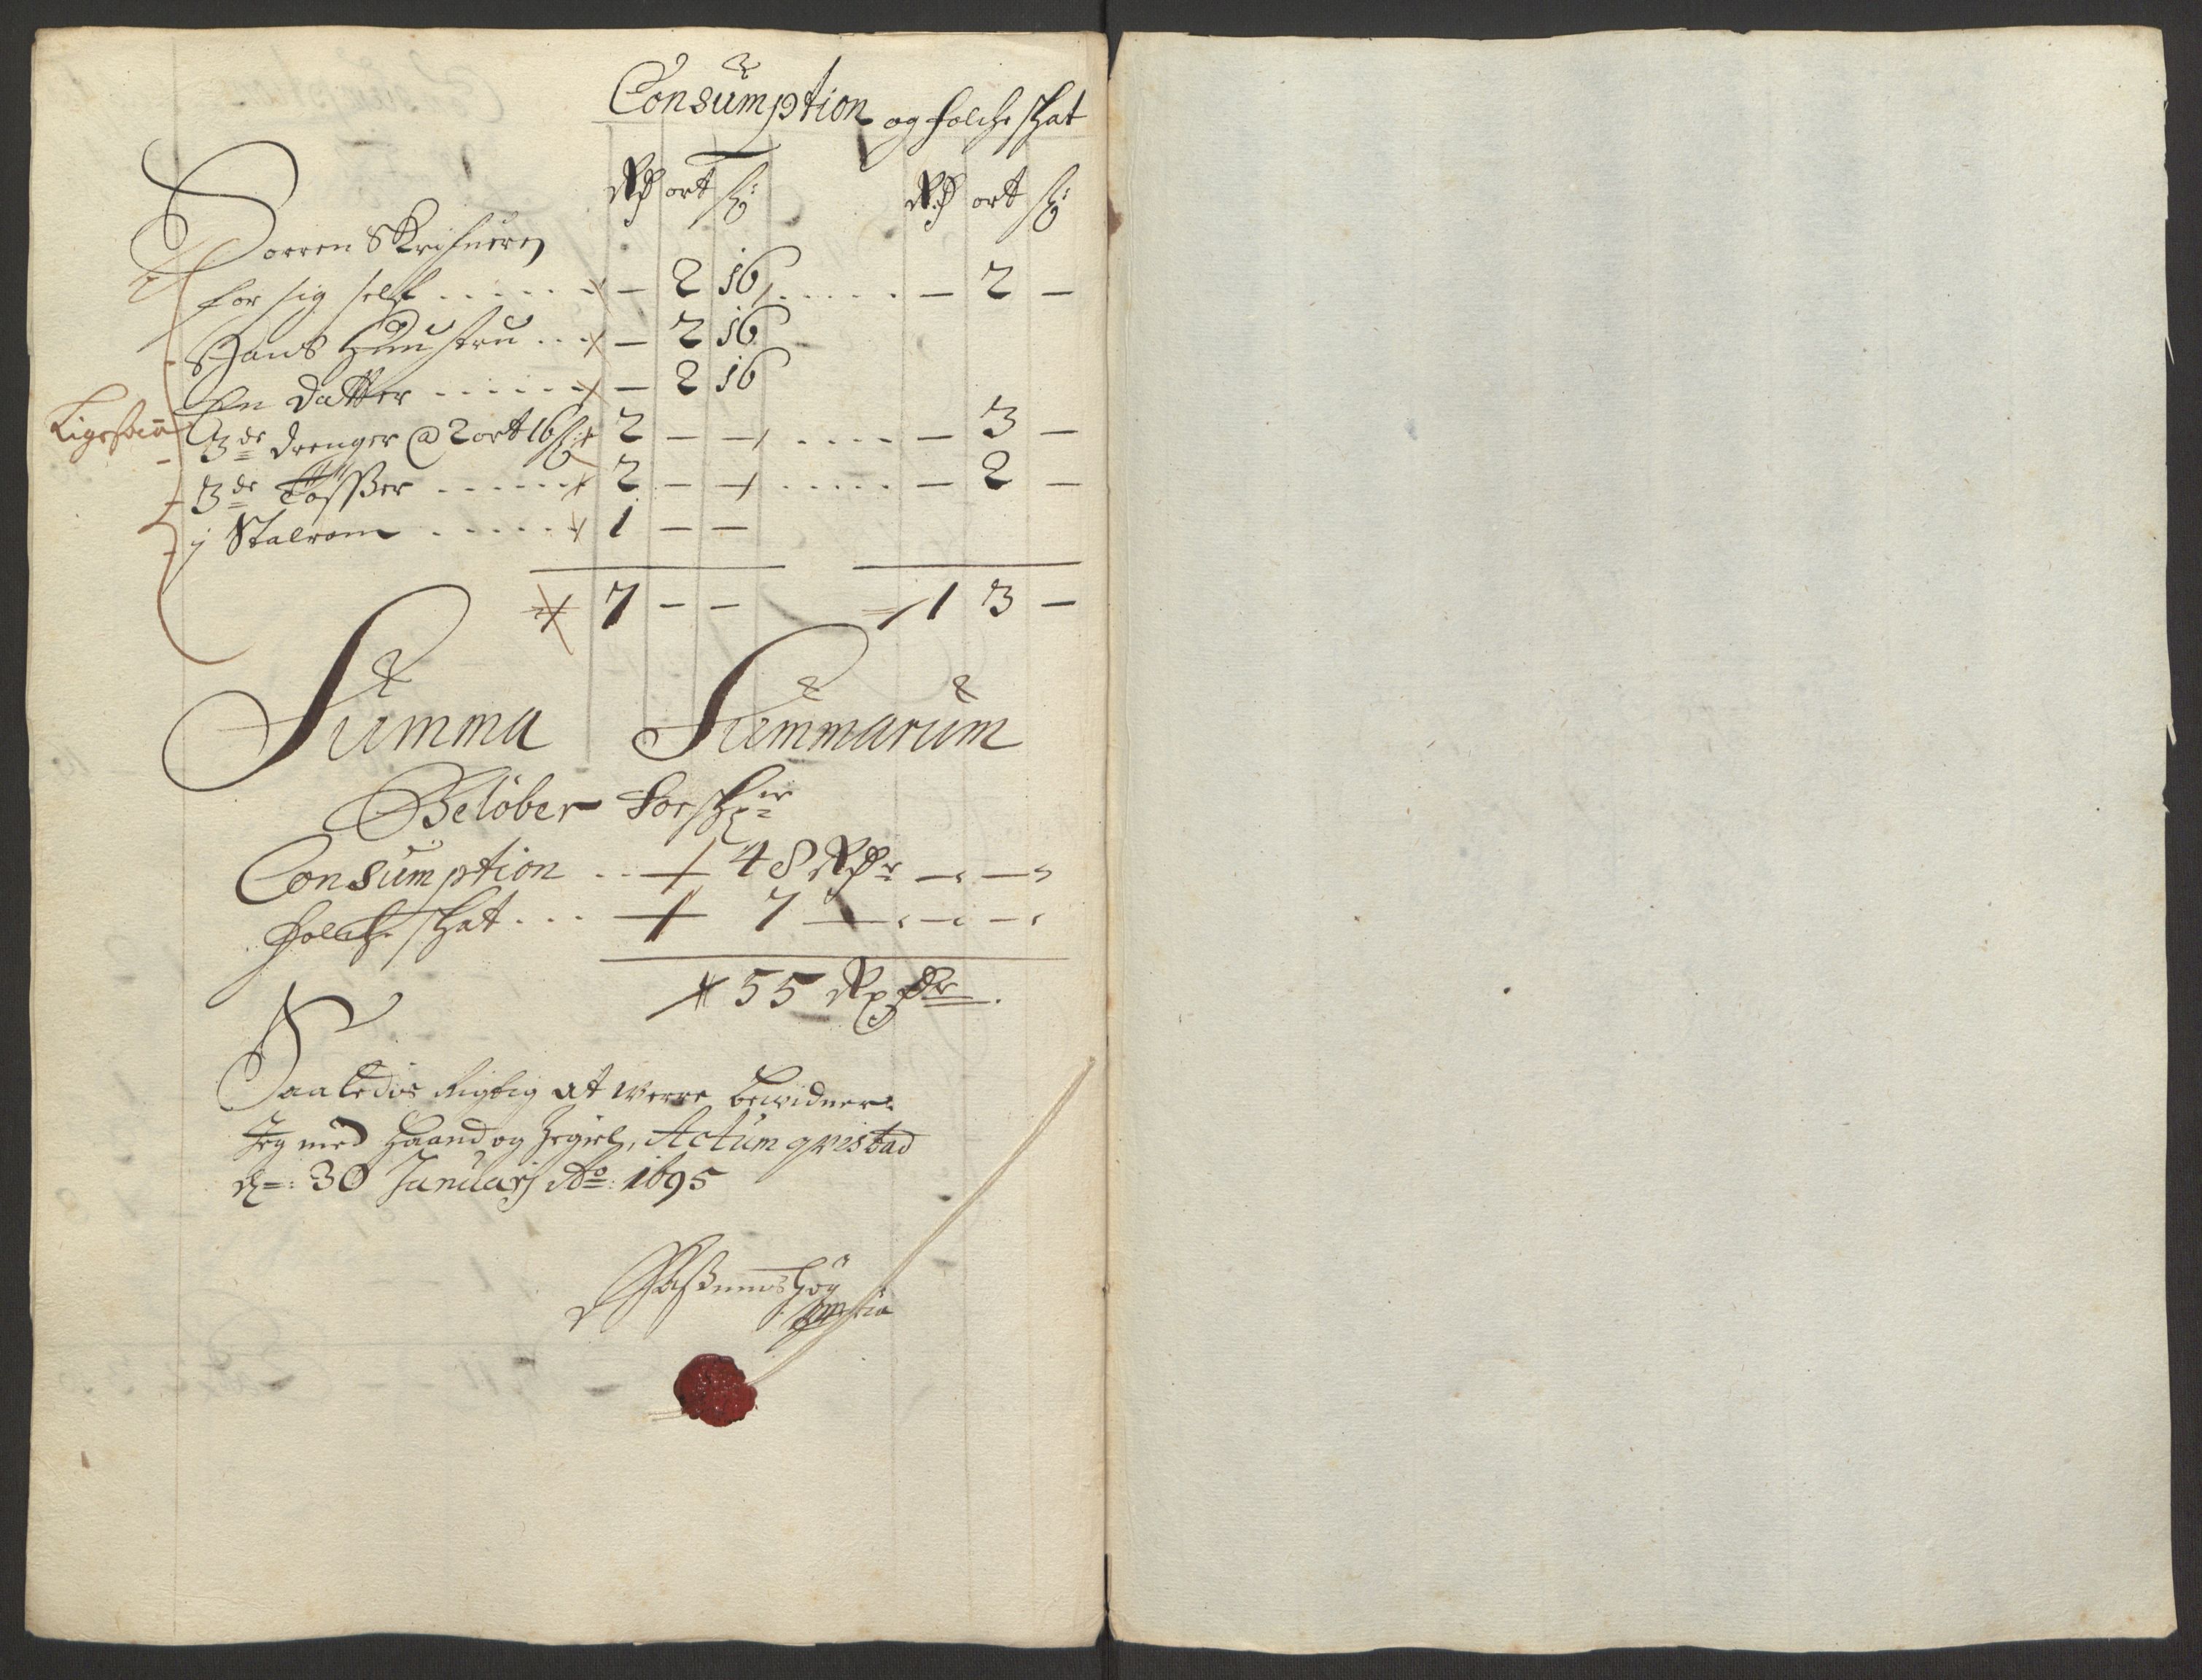 Consumption og folche skat
Rd ort sk: Rd ort sk:
Sorren Skrifuer
for sig self . . . . . — 2 16 . . . . . — 2 —
Hans Hustru . . — 2 16
En datter . . . . . — 2 16
3de drenger @ 2 ort 16 sk: 2 — — . . . . — 3 —
3de Tøsser . . . . . 2 — — . . . . . — 2 —
j Stalrom . . . . . 1 — —
7 — — 1 3 —
Summa Summarum
Beløber for
Consumption . . 48 Rdr — —
folche skat . . . 7 — — —
55 Rdr.
Saaledis Rigtig at werre bewidner
Jeg med Haand og Segiel, Actum qvistad
d: 30 Januarj Ao: 1695